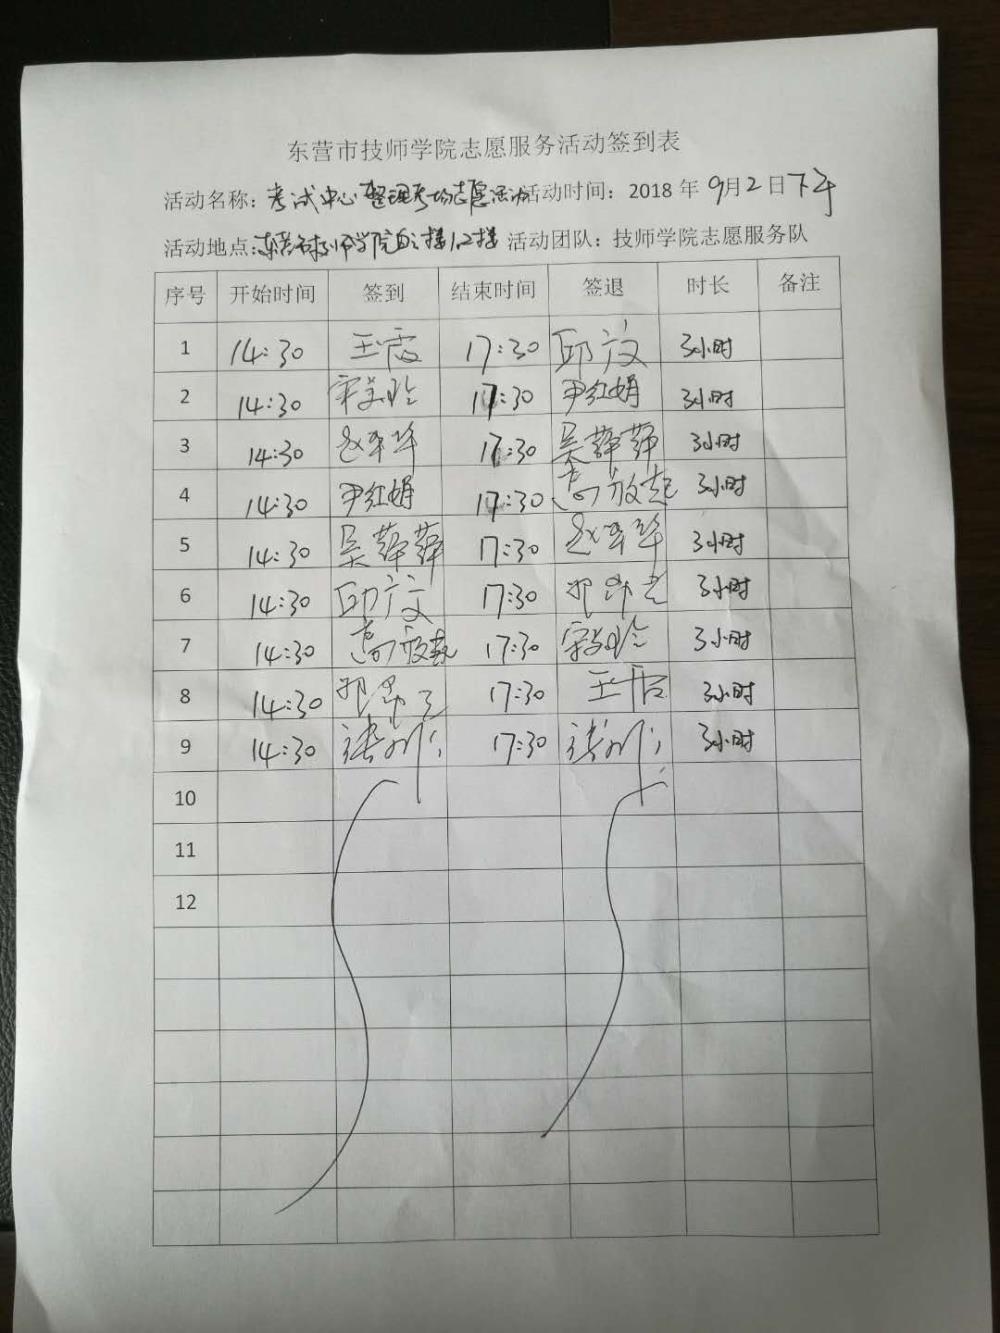 东营市技师学院志愿服务活动签到表
活动名称：考试中心整理考场志愿活动 活动时间：2018 年 9月2日下午
活动地点：东营市技师学院 楼1.2楼 活动团队：技师学院志愿服务队
序号 开始时间 签到 结束时间 签退 时长 备注
1 14:30 王霞 17:30 邱文 3小时
2 14:30 17:30 尹红娟 3小时
3 14:30 赵军华 17:30 吴萍萍 3小时
4 14:30 尹红娟 17:30 高放起 3小时
5 14:30 吴萍萍 17:30 赵军华 3小时
6 14:30 邱文 17:30 3小时
7 14:30 高 17:30 3小时
8 14:30 17:30 王 3小时
9 14:30 17:30 3小时
10
11
12